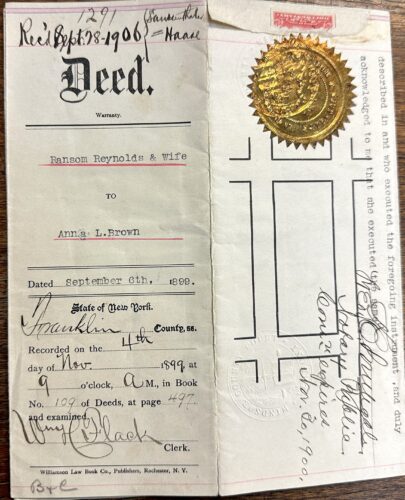 1291
Rec'd Sept. 28-1906
Haase
Deed.
Warranty.
Ransom Reynolds & Wife
TO
Anna L.Brown
Dated September 6th, 1899.
State of New York.
Franklin County, ss.
Recorded on the 4th
day of Nov. 1899 at
9 o'clock, A M., in Book
No. 109 of Deeds, at page 497
and examined
Clerk.
Williamson Law Book Co., Publishers, Rochester, N. Y.
B+C
described in and who executed the foregoing instrument ,and duly
acknowledged to me that she executed the same.
Notary Public
Com. expires
Nov. 30, 1900.